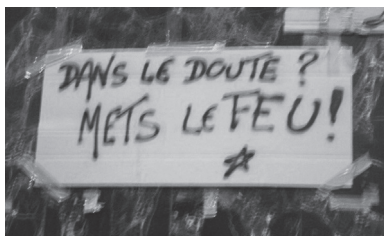 DANS LE DOUTE ?
METS LE FEU !